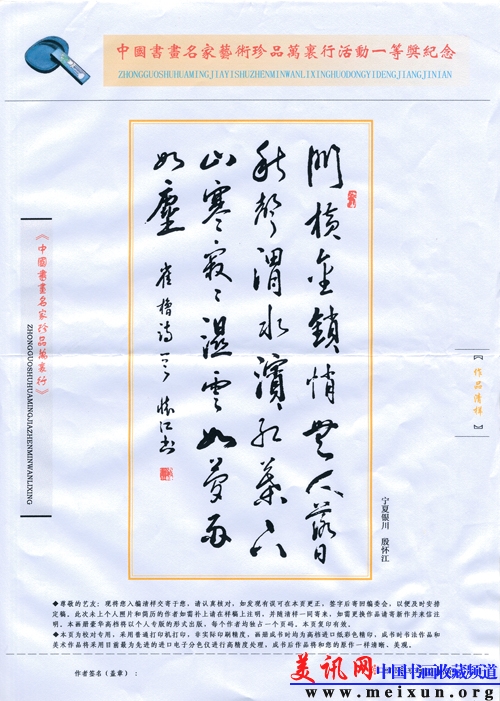 中國書畫名家藝術珍品萬裏行活動一等獎紀念
ZHONGGUOSHUHUAMINGJIAYISHUZHENMINWANLIXINGHUODONGYIDENGJIANGJINIAN
門横金鎖悄無人落日
秋聲渭水濱紅葉下
山寒寂〻濕雲如夢雨
如塵
崔櫓詩一首 懷江書
《中國書畫名家珍品萬裏行》
ZHONGGUOSHUHUAMINGJIAZHENMINWANLIXING
『作品清样』
宁夏银川 殷怀江
◆尊敬的艺友：现将您入编清样交寄于您，请认真核对，如发现有误可在本页更正，签字后寄回编委会，以便及时安排
定稿。此次未上个人照片和简历的作者如需补上请在样稿上注明，并随清样一同寄来，如需更换作品请寄新作并来信注
明。本画册豪华高档将以个人专版的形式出版，每个作者均独占一个页码。本页复印有效。
◆本页为校对专用，采用普通打印机打印，非实际印刷精度，画册成书时均为高档进口纸彩色精印，成书时书法作品和
美术作品将采用目前最为先进的进口电子分色仪进行高精度处理，成书后作品将和您的原作一样清晰、美观。
作者签名（盖章）：
美讯网 中国书画收藏频道
www.meixun.org